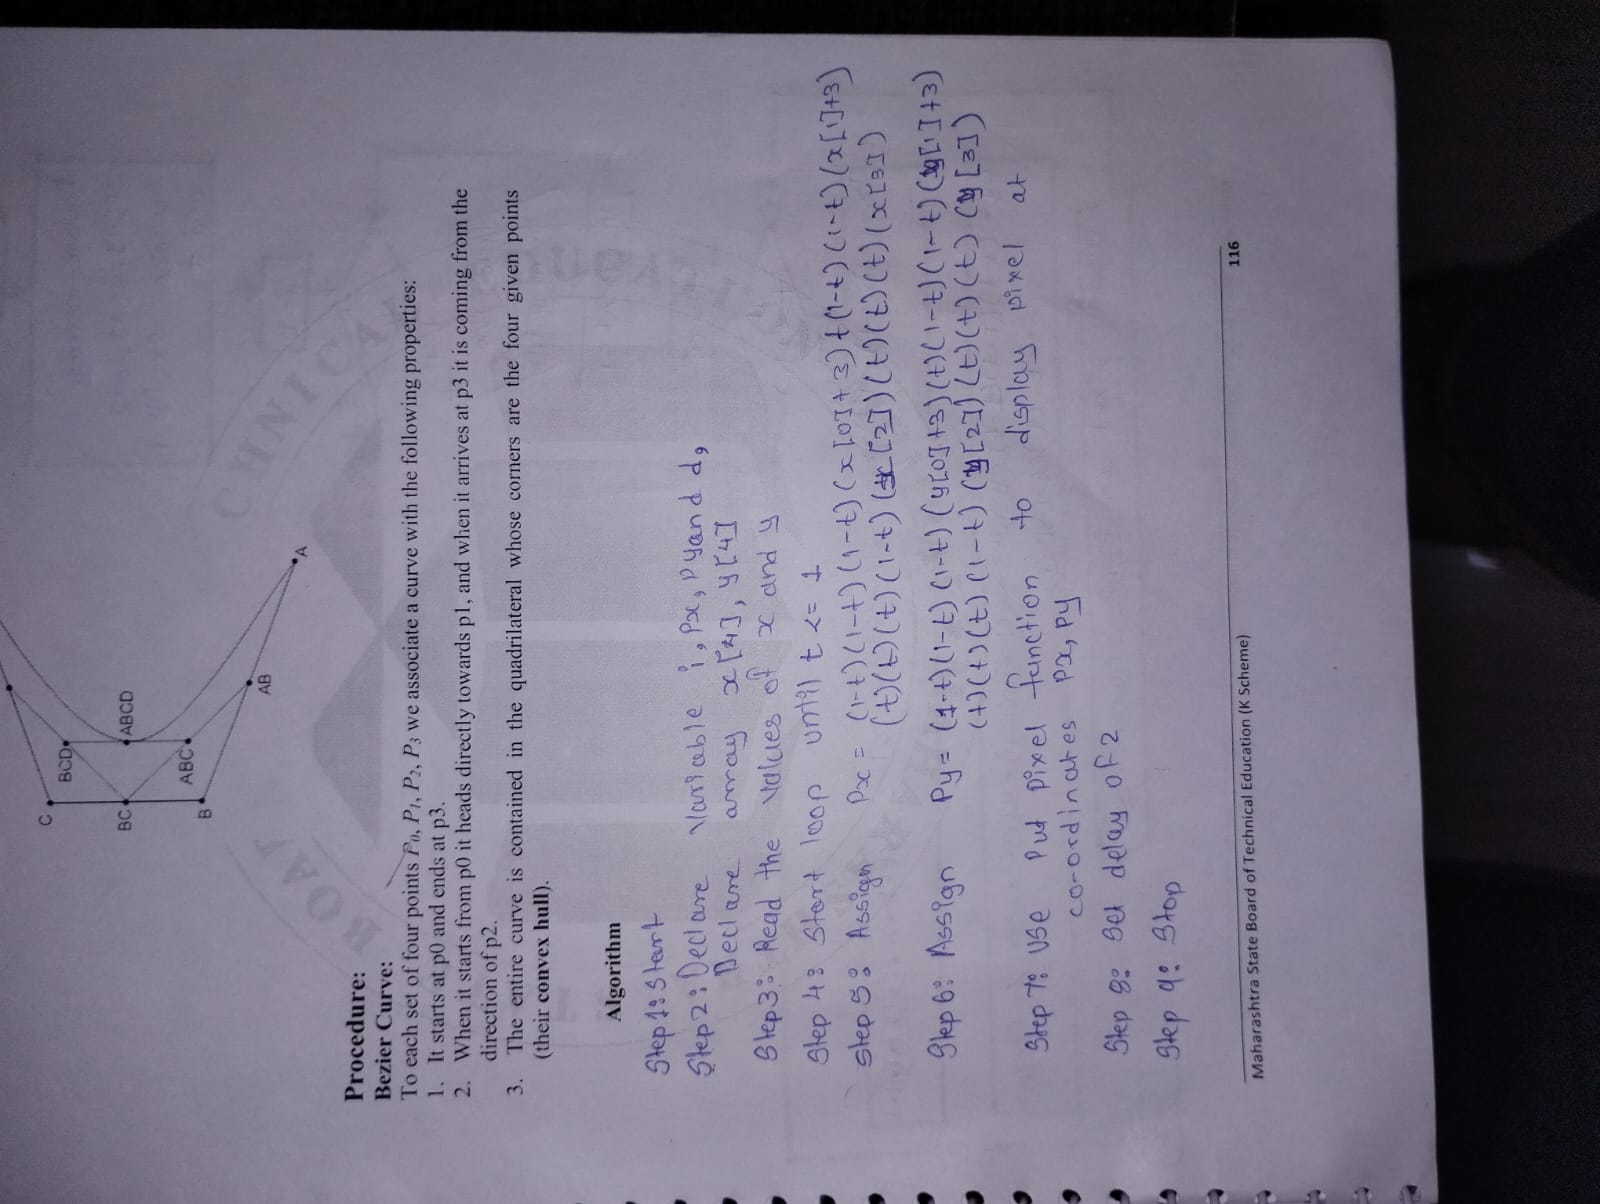 C
BCD
BC
ABCD
ABC
B
AB
A
Procedure:
Bezier Curve:
To each set of four points P0, P1, P2, P3 we associate a curve with the following properties:
1. It starts at p0 and ends at p3.
2. When it starts from p0 it heads directly towards p1, and when it arrives at p3 it is coming from the
direction of p2.
3. The entire curve is contained in the quadrilateral whose corners are the four given points
(their convex hull).
Algorithm
Step 1: Start
Step 2: Declare Variable i, Px, Py and d,
Declare array x[4], y[4]
Step 3: Read the values of x and y
Step 4: Start loop until t <= 1
Step 5: Assign Px = (1-t)(1-t)(1-t)(x[0]+3)t(1-t)(1-t)(x[1]+3)
(t)(t)(t)(1-t)(x[2])(t)(t)(t)(x[3])
Step 6: Assign Py = (1-t)(1-t)(1-t)(y[0]+3)(t)(1-t)(1-t)(y[1]+3)
(t)(t)(t)(1-t)(y[2])(t)(t)(t)(y[3])
Step 7: Use Put pixel function to display pixel at
co-ordinates Px, Py
Step 8: Set delay of 2
Step 9: Stop
Maharashtra State Board of Technical Education (K Scheme) 116